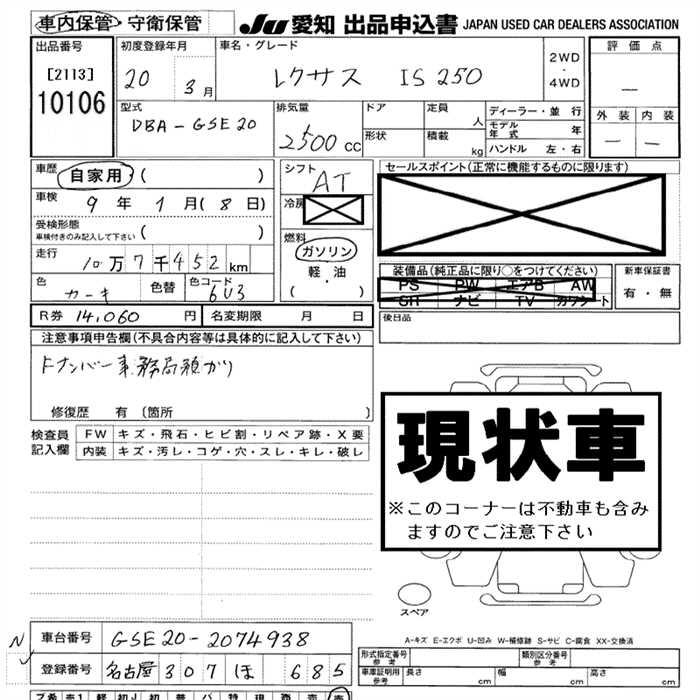 車内保管・守衛保管
JU 愛知 出品申込書 JAPAN USED CAR DEALERS ASSOCIATION
出品番号
[2113]
10106
初度登録年月
20 3月
車名・グレード
レクサス IS 250
2WD
・
4WD
評価点
—
外装 内装
— —
型式
DBA-GSE20
排気量
2500cc
ドア
形状
定員 人
積載 kg
ディーラー・並行
モデル年式 年
ハンドル 左・右
車歴
自家用・( )
車検
9年1月(8日)
受検形態
車検付きのみ記入して下さい ( )
走行
10万7千452km
色
色替
色コード
6U3
シフト
AT
冷房
燃料
ガソリン
軽・油
( )
セールスポイント(正常に機能するものに限ります)
装備品(純正品に限り○をつけてください)
PS PW エアB AW
SR ナビ TV カワシート
新車保証書
有・無
後日品
R券 14,060円
名変期限 月 日
注意事項申告欄(不具合内容等は具体的に記入して下さい)
ドナンバー事務局預かり
修復歴 有 〔箇所 〕
検査員記入欄
FW キズ・飛石・ヒビ割・リペア跡・X要
内装 キズ・汚レ・コゲ・穴・スレ・キレ・破レ
現状車
※このコーナーは不動車も含み
ますのでご注意下さい
スペア
A-キズ E-エクボ U-凹み W-補修跡 S-サビ C-腐食 XX-交換済
車台番号 GSE20-2074938
登録番号 名古屋 307 ほ 685
形式指定番号 参考
類別区分番号 参考
車庫証明用 参考
長さ cm
幅 cm
高さ cm